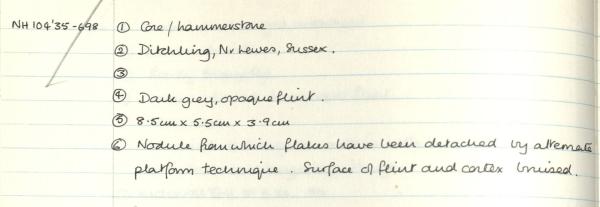 NH 104'35-698 ① Core / hammerstone
② Ditchling, Nr Lewes, Sussex.
③
④ Dark grey, opaque flint.
⑤ 8.5cm x 5.5cm x 3.9cm
⑥ Nodule from which flakes have been detached by alternate
platform technique. Surface of flint and cortex bruised.